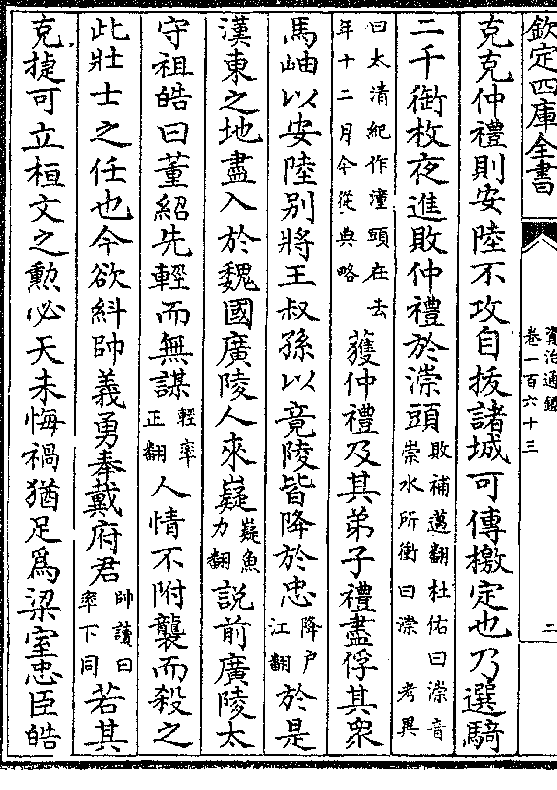 欽定四庫全書
資治通鑑
卷一百六十三
二
克克仲禮則安陸不攻自拔諸城可傳檄定也乃選騎
二千銜枚夜進敗仲禮於漴頭敗補邁翻杜佑曰漴音崇水所衝曰漴 考異
曰太清紀作潼頭在去年十二月今從典略 獲仲禮及其弟子禮盡俘其衆
馬岫以安陸别將王叔孫以竟陵皆降於忠降户江翻於是
漢東之地盡入於魏國廣陵人來嶷嶷魚力翻說前廣陵太
守祖皓曰董紹先輕而無謀輕率正翻人情不附襲而殺之
此壯士之任也今欲糾帥義勇奉戴府君帥讀曰率下同若其
克捷可立桓文之勲必天未悔禍猶足為梁室忠臣皓